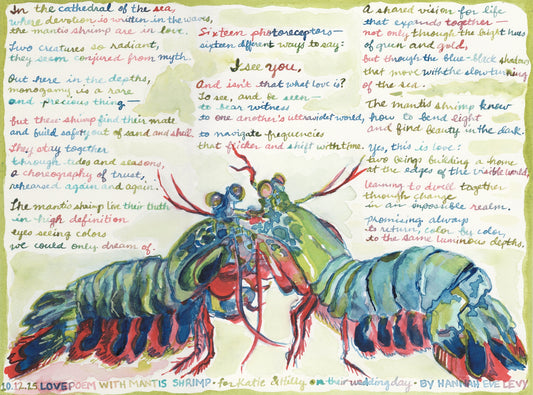 In the cathedral of the sea,
where devotion is written in the waves,
the mantis shrimp are in love.
Two creatures so radiant,
they seem conjured from myth.
Out here in the depths,
monogamy is a rare
and precious thing—
but these shrimp find their mate
and build safety out of sand and shell.
They stay together
through tides and seasons,
a choreography of trust,
rehearsed again and again.
The mantis shrimp live their truth
in high definition
eyes seeing colors
we could only dream of.
Sixteen photoreceptors—
sixteen different ways to say:
I see you.
And isn't that what love is?
To see, and be seen—
to bear witness
to one another's ultraviolet world,
to navigate frequencies
that flicker and shift with time.
A shared vision for life
that expands together—
not only through the bright hues
of green and gold,
but through the blue-black shadows
that move with the slow turning
of the sea.
The mantis shrimp know
how to bend light
and find beauty in the dark.
Yes, this is love:
two beings building a home
at the edges of the visible world,
learning to dwell together
through change
in an impossible realm.
promising always
to return, color by color,
to the same luminous depths.
10.12.25 LOVE POEM WITH MANTIS SHRIMP • for Katie & Hilly on their wedding day • BY HANNAH EVE LEVY